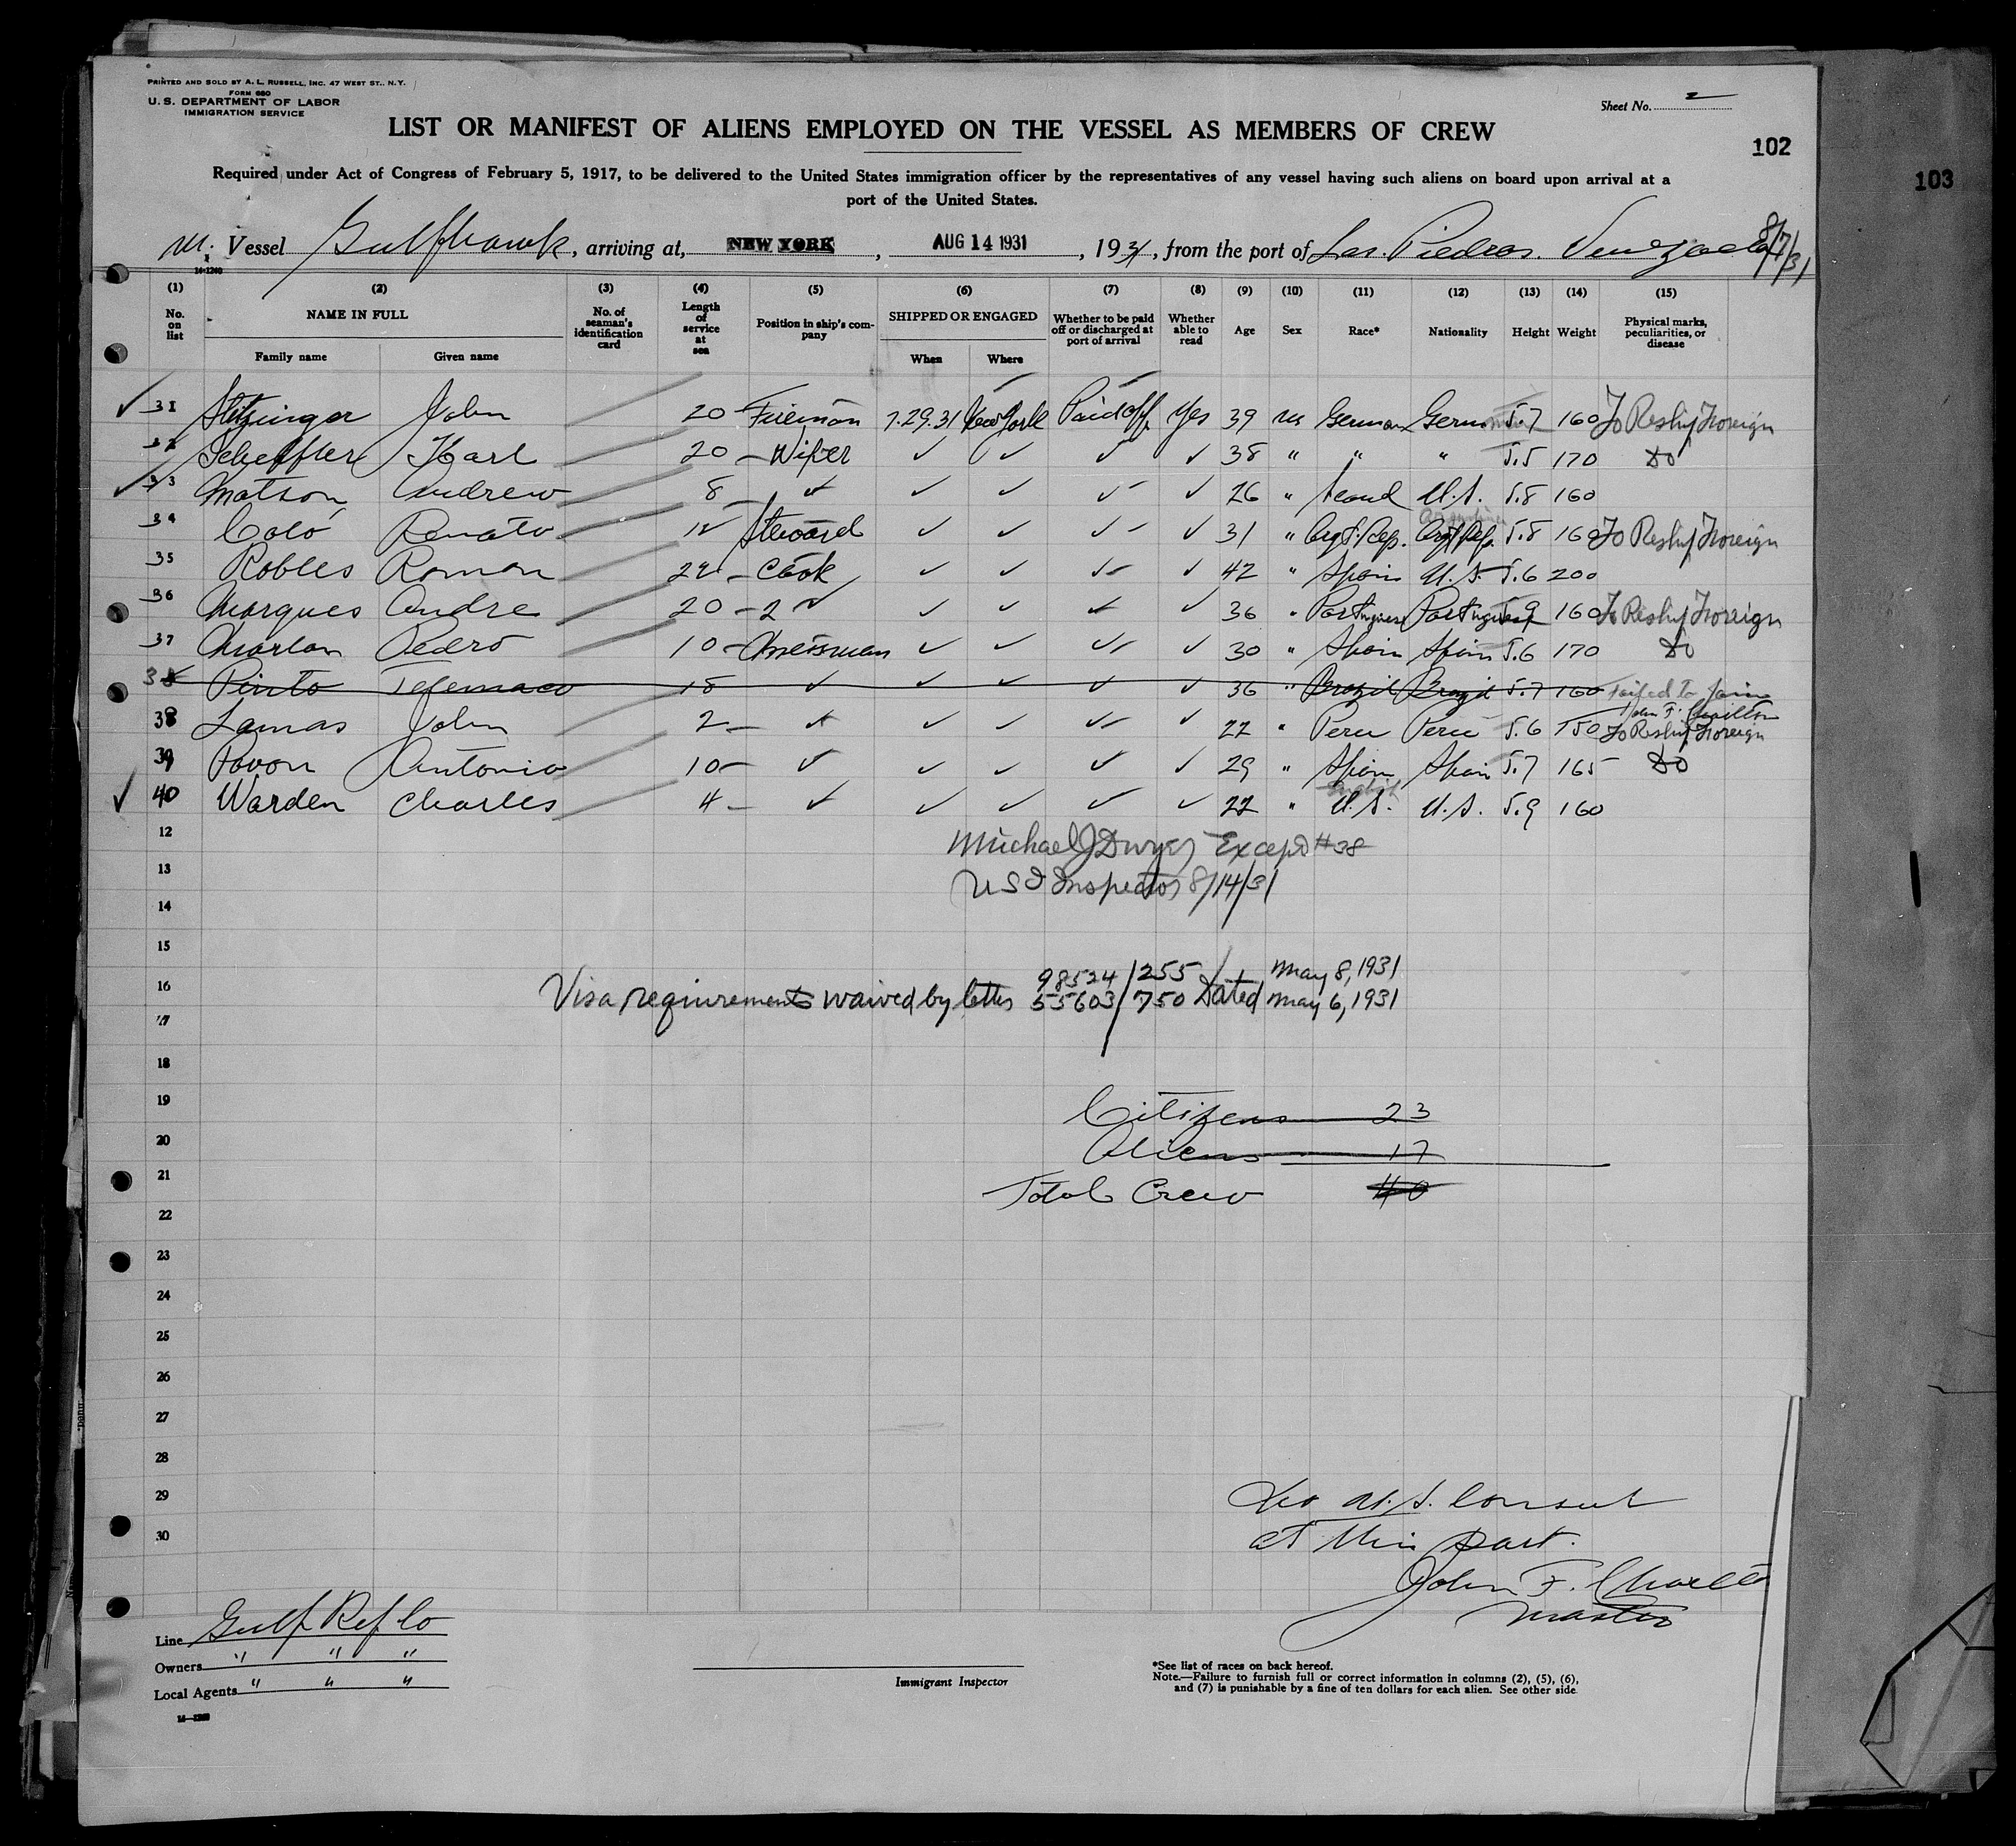 PRINTED AND SOLD BY A. L. RUSSELL, INC. 47 WEST ST., N. Y.
FORM 680
U. S. DEPARTMENT OF LABOR
IMMIGRATION SERVICE
Sheet No. 2
LIST OR MANIFEST OF ALIENS EMPLOYED ON THE VESSEL AS MEMBERS OF CREW
102
103
Required under Act of Congress of February 5, 1917, to be delivered to the United States immigration officer by the representatives of any vessel having such aliens on board upon arrival at a
port of the United States.
M. Vessel Gulfhawk, arriving at, NEW YORK, AUG 14 1931, 1931, from the port of Las Piedras. Venezuela 8/7/31
14-1240
(1) (2) (3) (4) (5) (6) (7) (8) (9) (10) (11) (12) (13) (14) (15)
No. on list NAME IN FULL No. of seaman's identification card Length of service at sea Position in ship's company SHIPPED OR ENGAGED Whether to be paid off or discharged at port of arrival Whether able to read Age Sex Race* Nationality Height Weight Physical marks, peculiarities, or disease
Family name Given name When Where
✓ 31 Stetzinger John 20 Fireman 7.29.31 New York Paid off Yes 39 M German German 5.7 160 To Reship Foreign
32 Scheffler Karl 20 - Wiper ✓ ✓ ✓ ✓ 38 " " " 5.5 170 Do
✓ 33 Matson Andrew 8 - ✓ ✓ ✓ ✓ ✓ 26 " Scand U.S. 5.8 160
34 Coló Renato 12 Steward ✓ ✓ ✓ ✓ 31 " Argt. Rep. Argt Rep. 5.8 160 To Reship Foreign
35 Robles Roman 24 - Cook ✓ ✓ ✓ ✓ 42 " Spain U.S. 5.6 200
36 Marques Andre 20 - 2 ✓ ✓ ✓ ✓ ✓ 36 " Portuguese Portuguese 5.9 160 To Reship Foreign
37 Marlan Pedro 10 - Messman ✓ ✓ ✓ ✓ 30 " Spain Spain 5.6 170 Do
38 Pinto Telemaco 18 ✓ ✓ ✓ ✓ ✓ 36 " Brazil Brazil 5.7 160 Failed To Join
John F. Charlton
38 Lamas John 2 - ✓ ✓ ✓ ✓ ✓ 22 " Peru Peru 5.6 150 To Reship Foreign
39 Pavon Antonio 10 - ✓ ✓ ✓ ✓ ✓ 29 " Spain Spain 5.7 165 Do
English
✓ 40 Warden Charles 4 - ✓ ✓ ✓ ✓ ✓ 22 " U.S. U.S. 5.9 160
12 Michael J Dwyer Except #38
13 U S I Inspector 8/14/31
14
15
98524/255 May 8, 1931
16 Visa requirements waived by letter 55603/750 Dated May 6, 1931
17
18
19 Citizens 23
20 Aliens 17
21 Total Crew 40
22
23
24
25
26
27
28
29 No U.S. Consul
30 at this port.
John F. Charlton
Master
Line Gulf Ref Co
Owners " " "
Local Agents " " "
Immigrant Inspector
*See list of races on back hereof.
Note.—Failure to furnish full or correct information in columns (2), (5), (6),
and (7) is punishable by a fine of ten dollars for each alien. See other side.